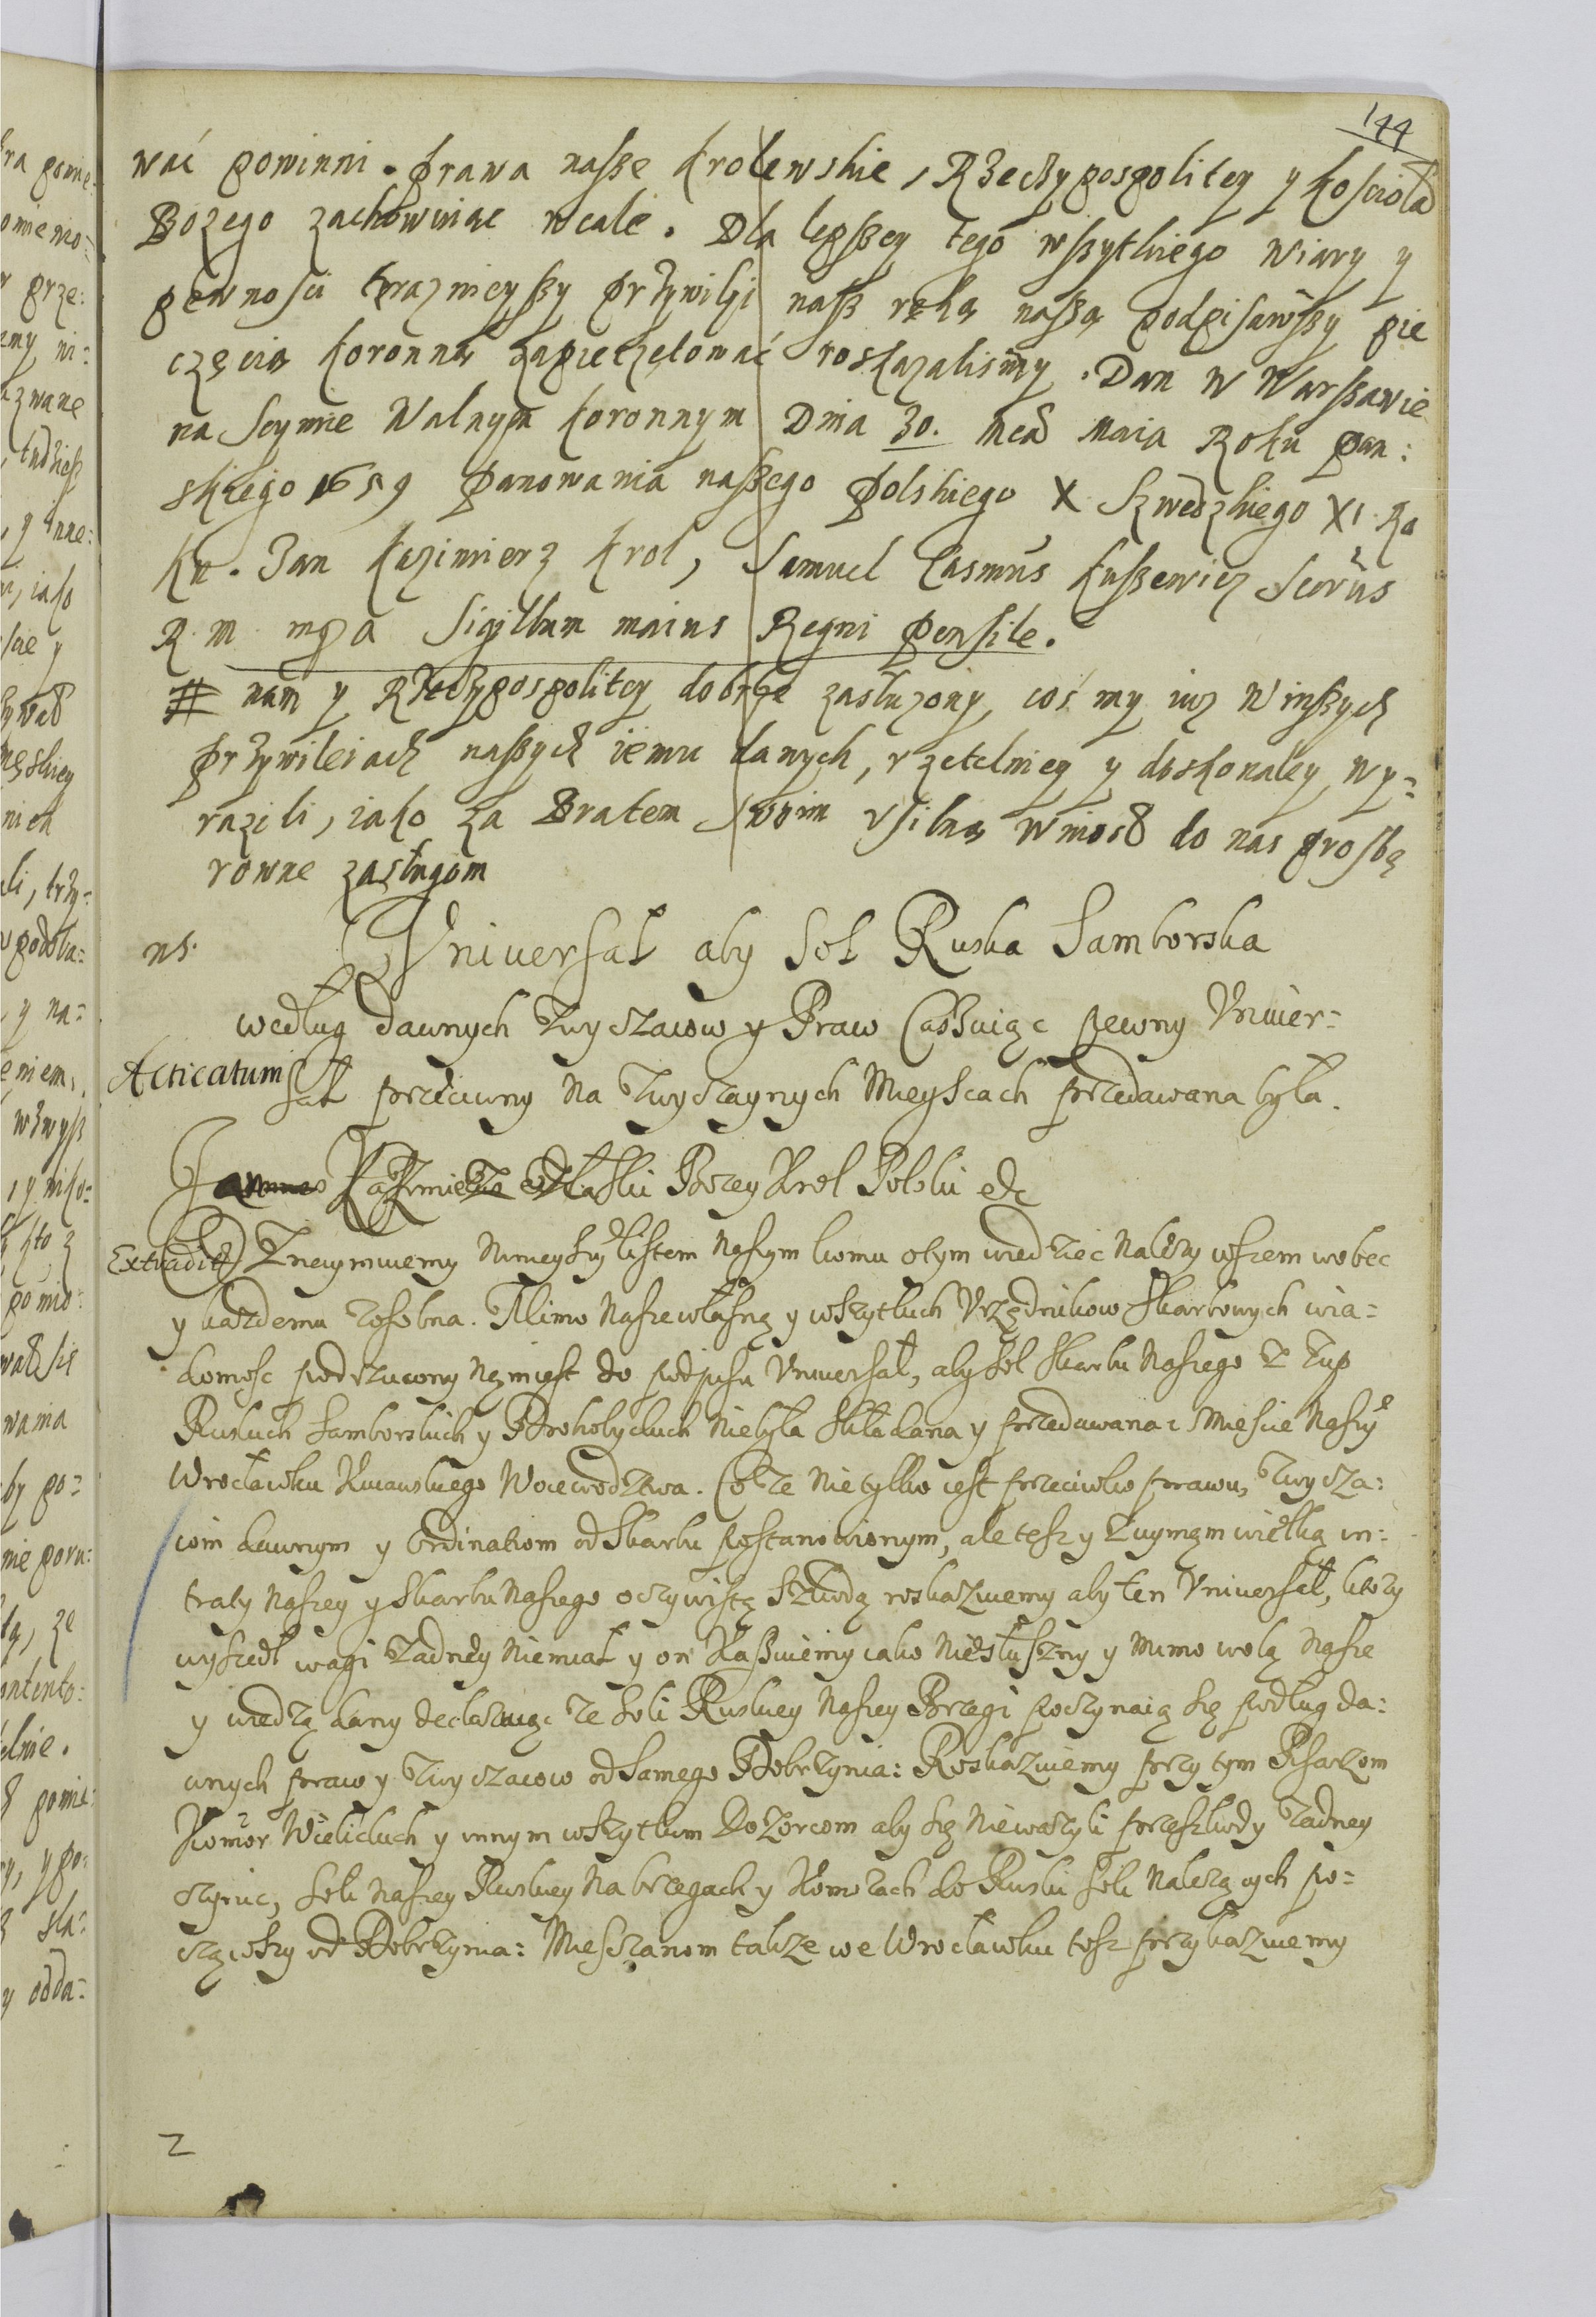 144
wać powinni. Prawa nasze Krolewskie, Rzeczypospolitey y Koscioła
Bozego zachowuiąc wcale. Dla lepszey tego wszytkiego wiary y
pewnosci teraznieyszy przywiley nasz ręką naszą podpisawszy pie
częcią Koronną zapieczętować roskazalismy. Dan w Warszawie
na Seymie Walnym Koronnym Dnia 30. mca Maia Roku Pan:
skiego 1659 Panowania naszego Polskiego X Szwedzkiego XI Ro
ku. Jan Kazimierz Krol, Samuel Casmus Kuszewicz Scrius
R M mpa Sigillum maius Regni pensile.
# nam y Rzeczypospolitey dobrze zasłuzony, cosmy iuz w inszych
Przywileiach naszych iemu danych, rzetelniey y doskonaley wy=
razili, iako za Bratem swoim usilną wniosł do nas prosbę
rowne zasługom
ns.
Vniversał aby Sol Ruska Samborska
według dawnych Zwyczaiow y Praw Cassuiąc pewny Vniwer=
Acticatum
sał przeciwny na Zwyczaynych Mieyscach przedawana była.
Jan Kazimierz z Łaski Bozey Krol Polski etc
Extradit
Znaymuiemy ninieyszym listem Naszym komu o tym wiedziec nalezy wszem wobec
y kazdemu zosobna. Mimo Nasze własną y wszytkich Vrzędnikow Skarbowych wia=
domosc podrzucony Nam iest do podpisu Vniwersał, aby sol Skarbu Naszego z Zup
Ruskich Samborskich y Drohobyckich nie była składana y przedawana w Miescie Naszym
Wrocławku Kuiawskiego Woiewodztwa. Co ze nie tylko iest przeciwko prawu, Zwycza:
iom dawnym y Ordinatiom od Skarbu postanowionym, ale tesz y Zuymąm wielką in:
traty Naszey y Skarbu Naszego oczywistą Szkodą roskazuiemy aby ten Vniversał, ktory
wyszedł wagi zadney nie miał y on Kassuiemy iako niesłuszny y mimo wolą Nasze
y wiedzą dany declaruiąc ze Soli Ruskiey Naszey Brzegi poczynaią się podług da:
wnych praw y Zwyczaiow od Samego Dobrzynia: Roskazuiemy przy tym Pisarzom
Komor Wielickich y innym wszytkim Dozorcom aby się nie wazyli przeszkody zadney
czynic, Soli Naszey Ruskiey na brzegach y Komorach do Ruski Soli nalezących po=
cząwszy od Dobrzynia: Miesczanom takze we Wrocławku tosz przykazuiemy
2